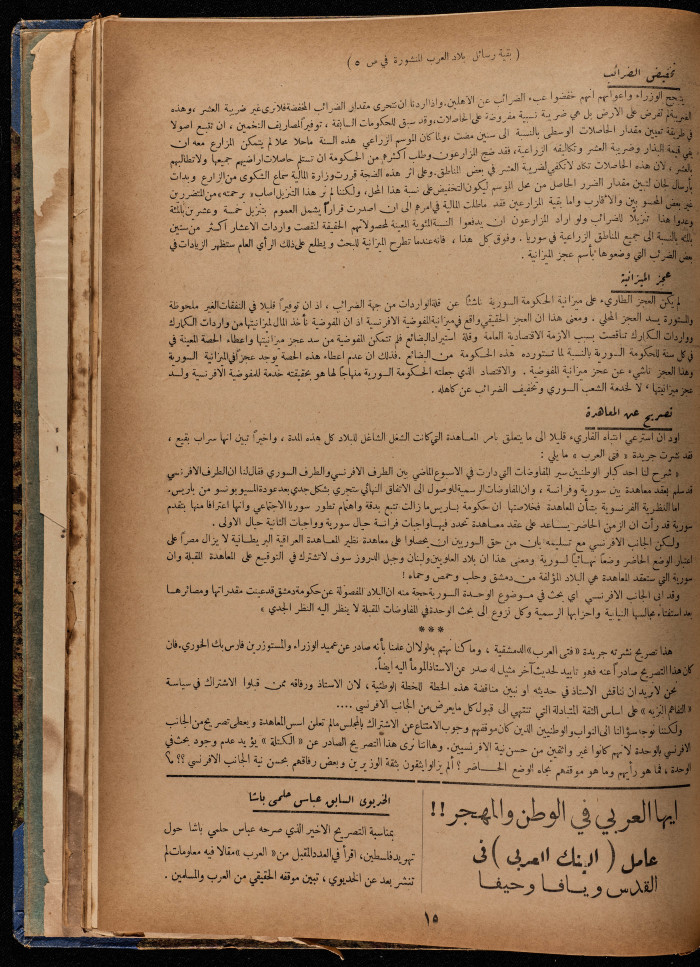 ( بقية رسائل بلاد العرب المنشورة في ص ٥ )
تخفيض الضرائب
يتبجح الوزراء واعوانهم انهم خفضوا عبء الضرائب عن الاهلين. واذا اردنا ان نتحرى مقدار الضرائب المخفضة فلا نرى غير ضريبة العشر، وهذه
الضريبة لم تفرض على الارض بل هي ضريبة نسبية مفروضة على الحاصلات، وقد سبق للحكومات السابقة، توفيراً لمصاريف التخمين، ان تتبع اصولا
وطريقة لتعيين مقدار الحاصلات الوسطى بالنسبة الى سنين مضت، ولما كان الموسم الزراعي هذه السنة ماحلا محلا لم يتمكن المزارع معه ان
يفي قيمة البذار وضريبة العشر وتكاليفه الزراعية، فقد ضج المزارعون وطلب اكثرهم من الحكومة ان تستلم حاصلات اراضيهم جميعها ولا تطالبهم
بالعشر، لان هذه الحاصلات تكاد لا تكفي لضريبة العشر في بعض المناطق. وعلى أثر هذه الضجة قررت وزارة المالية سماع الشكوى من المزارع وبدأت
بارسال لجان لتعيين مقدار الضرر الحاصل من محل الموسم ليكون التخفيض على نسبة هذا المحل، ولكننا لم نر هذا التنزيل اصاب «برحمته» من المتضررين
غير بعض المحسوبين والاقارب واما بقية المزارعين فقد ماطلت المالية في امرهم الى ان اصدرت قراراً يشمل العموم بتنزيل خمسة وعشرين بالمئة
وعدوا هذا تنزيلا للضرائب ولو اراد المزارعون ان يدفعوا النسبة المئوية المعينة لمحصولاتهم الحقيقة لنقصت واردات الاعشار اكثر من ستين
بالمئة بالنسبة الى جميع المناطق الزراعية في سوريا. وفوق كل هذا، فانه عندما تطرح الميزانية للبحث و يطلع على ذلك الرأي العام ستظهر الزيادات في
بعض الضرائب التي وضعوها بأسم عجز الميزانية.
عجز الميزانية
لم يكن العجز الطاريء على ميزانية الحكومة السورية ناشئاً عن قلة الواردات من جهة الضرائب، اذ ان توفيراً قليلا في النفقات الغير ملحوظة
والمستورة يسد العجز المحلي. ومعنى هذا ان العجز الحقيقي واقع في ميزانية المفوضية الافرنسية اذ ان المفوضية تأخذ المال لميزانيتها من واردات الكمارك
وواردات الكمارك تناقصت بسبب الازمة الاقتصادية العامة وقلة استيراد البضائع فلم تتمكن المفوضية من سد عجز ميزانيتها واعطاء الحصة المعينة في
في كل سنة للحكومة السورية بالنسبة لما تستورده هذه الحكومة من البضائع. فذلك ان عدم اعطاء هذه الحصة يوجد عجزاً في الميزانية السورية
وهذا العجز ناشيء عن عجز ميزانية المفوضية. والاقتصاد الذي جعلته الحكومة السورية منهاجاً لها هو بحقيقته خدمة للمفوضية الافرنسية ولسد
عجز ميزانيتها لا لخدمة الشعب السوري وتخفيف الضرائب عن كاهله.
تصريح عن المعاهدة
اود ان استرعي انتباه القاريء قليلا الى ما يتعلق بامر المعاهدة التي كانت الشغل الشاغل للبلاد كل هذه المدة، واخيراً تبين انها سراب بقيع،
فقد نشرت جريدة « فتى العرب » ما يلي :
« شرح لنا احد كبار الوطنيين سير المفاوضات التي دارت في الاسبوع الماضي بين الطرف الافرنسي والطرف السوري فقال لنا ان الطرف الافرنسي
قد سلم بعقد معاهدة بين سورية وفرنسة، وان المفاوضات الرسمية للوصول الى الاتفاق النهائي ستجري بشكل جدي بعد عودة المسيو بونسو من باريس.
اما النظرية الفرنسوية بشأن المعاهدة فخلاصتها ان حكومة باريس ما زالت تتبع بدقة واهتمام تطور سوريا الاجتماعي وانها اعترافا منها بتقدم
سورية قد رأت ان الزمن الحاضر يساعد على عقد معاهدة تحدد فيها واجبات فرنسة حيال سورية وواجبات الثانية حيال الاولى.
ولكن الجانب الافرنسي مع تسليمه بان من حق السوريين ان يحصلوا على معاهدة نظير المعاهدة العراقية البريطانية لا يزال مصراً على
اعتبار الوضع الحاضر وضعاً نهائياً لسورية ومعنى هذا ان بلاد العلويين ولبنان وجبل الدروز سوف لا تشترك في التوقيع على المعاهدة المقبلة وان
سورية التي ستعقد المعاهدة هي البلاد المؤلفة من دمشق وحلب وحمص وحماه !
وقد ابى الجانب الافرنسي اي بحث في موضوع الوحدة السورية حجة منه ان البلاد المفصولة عن حكومة دمشق قد عينت مقدراتها ومصائرها
بعد استفتاء مجالسها النيابية واحزابها الرسمية وكل نزوع الى بحث الوحدة في المفاوضات المقبلة لا ينظر اليه النظر الجدي »
***
هذا تصريح نشرته جريدة « فتى العرب » الدمشقية، وما كنا نهتم به لولا ان علمنا بأنه صادر عن عميد الوزراء والمستوزرين فارس بك الخوري. فان
كان هذا التصريح صادراً عنه فهو تاييد لحديث آخر مثيل له صدر عن الاستاذ المومأ اليه ايضاً.
نحن لا نريد ان نناقش الاستاذ في حديثه او نبين مناقضة هذه الخطة للخطة الوطنية، لان الاستاذ ورفاقه ممن قبلوا الاشتراك في سياسة
« التفاهم النزيه » على اساس الثقة المتبادلة التي تنتهي الى قبول كل ما يعرض من الجانب الافرنسي ....
ولكننا نوجه سؤالنا الى النواب والوطنيين الذين كان موقفهم وجوب الامتناع عن الاشتراك بالمجلس ما لم تعلن اسس المعاهدة ويعطى تصريح من الجانب
الافرنسي بالوحدة لانهم كانوا غير واثقين من حسن نية الافرنسيين. وها اننا نرى هذا التصريح الصادر عن « الكتلة » يؤيد عدم وجود بحث في
الوحدة، فما هو رأيهم وما هو موقفهم تجاه الوضع الحاضر؟ ألم يزالوا يثقون بثقة الوزيرين وبعض رفاقهم بحسن نية الجانب الافرنسي ؟؟ »
ايها العربي في الوطن والمهجر !!
عامل ( البنك العربي ) في
القدس ويافا وحيفا
الخديوي السابق عباس حلمي باشا
بمناسبة التصريح الاخير الذي صرحه عباس حلمي باشا حول
تهويد فلسطين، اقرأ في العدد المقبل من « العرب » مقالا فيه معلومات لم
تنشر بعد عن الخديوي، تبين موقفه الحقيقي من العرب والمسلمين.
١٥